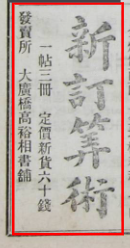 新訂筭術
一帖三冊　定價新貨六十錢
發賣所　大廣橋高裕相書舖